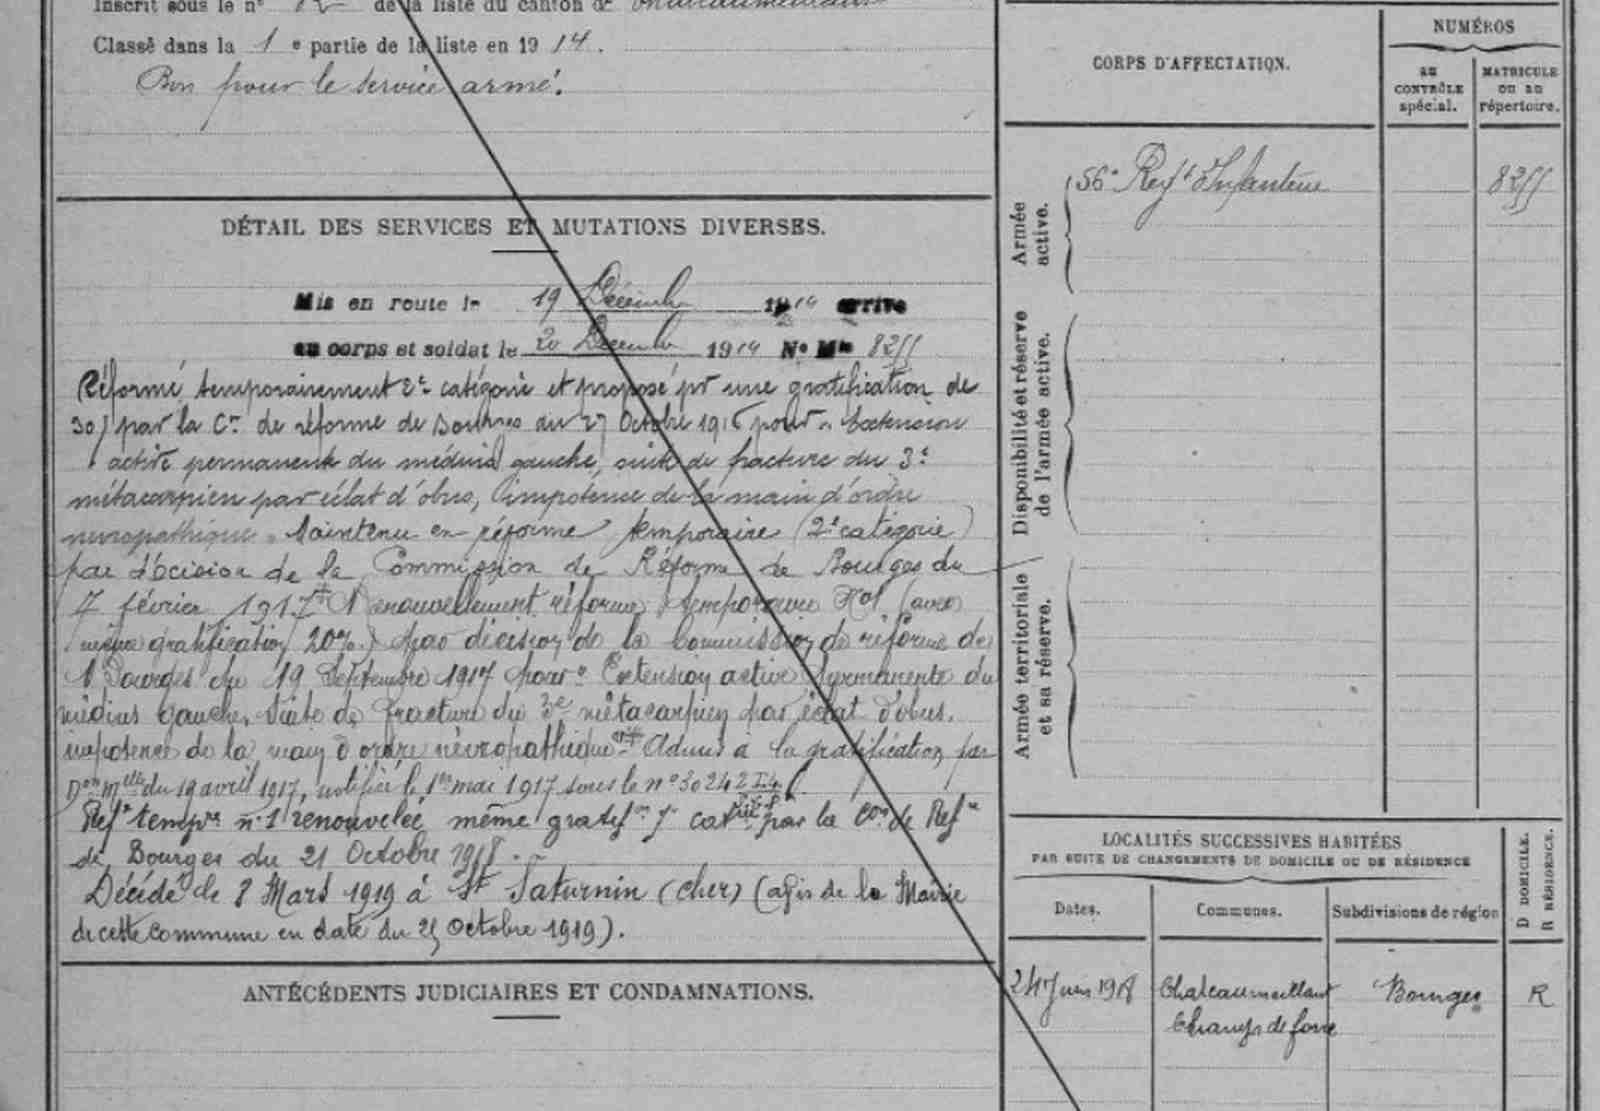 Inscrit sous le n° 12 de la liste du canton de Châteaumeillant
Classé dans la 1e partie de la liste en 1914.
Bon pour le service armé.
DÉTAIL DES SERVICES ET MUTATIONS DIVERSES.
Mis en route le 19 Décembre 1914 arrivé
au corps et soldat le 20 Décembre 1914 N° Mle 8255
Réformé temporairement 2e catégorie et proposé pr une gratification de
30% par la Con de réforme de Bourges du 27 Octobre 1916 pour « Extension
active permanente du médius gauche, suite de fracture du 3e
métacarpien par éclat d'obus, impotence de la main d'ordre
nevropathique » Maintenu en réforme temporaire (2e catégorie)
par décision de la Commission de Réforme de Bourges du
7 février 1917 Renouvellement réforme temporaire N°1 (avec
même gratification 20%) par décision de la Commission de réforme de
Bourges du 19 Septembre 1917 pour « Extension active permanente du
médius gauche, suite de fracture du 3e métacarpien par éclat d'obus,
impotence de la main d'ordre névropathique » Admis à la gratification par
Don Mlle du 19 avril 1917, notifié le 1er mai 1917 sous le n° 30242
Refe tempre n°1 renouvelée même gratifon 7e catie par la Con de Refe
de Bourges du 21 Octobre 1918.
Décédé le 8 Mars 1919 à St Saturnin (Cher) (avis de la Mairie
de cette commune en date du 25 Octobre 1919).
ANTÉCÉDENTS JUDICIAIRES ET CONDAMNATIONS.
CORPS D'AFFECTATION.
NUMÉROS
au CONTRÔLE spécial.
MATRICULE ou au répertoire.
Armée active.
56e Regt d'Infanterie 8255
Disponibilité et réserve de l'armée active.
Armée territoriale et sa réserve.
LOCALITÉS SUCCESSIVES HABITÉES
PAR SUITE DE CHANGEMENTS DE DOMICILE OU DE RÉSIDENCE
D DOMICILE.
R RÉSIDENCE.
Dates. Communes. Subdivisions de région
24 Juin 1918 Chateaumeillant Bourges R
Champs de foire